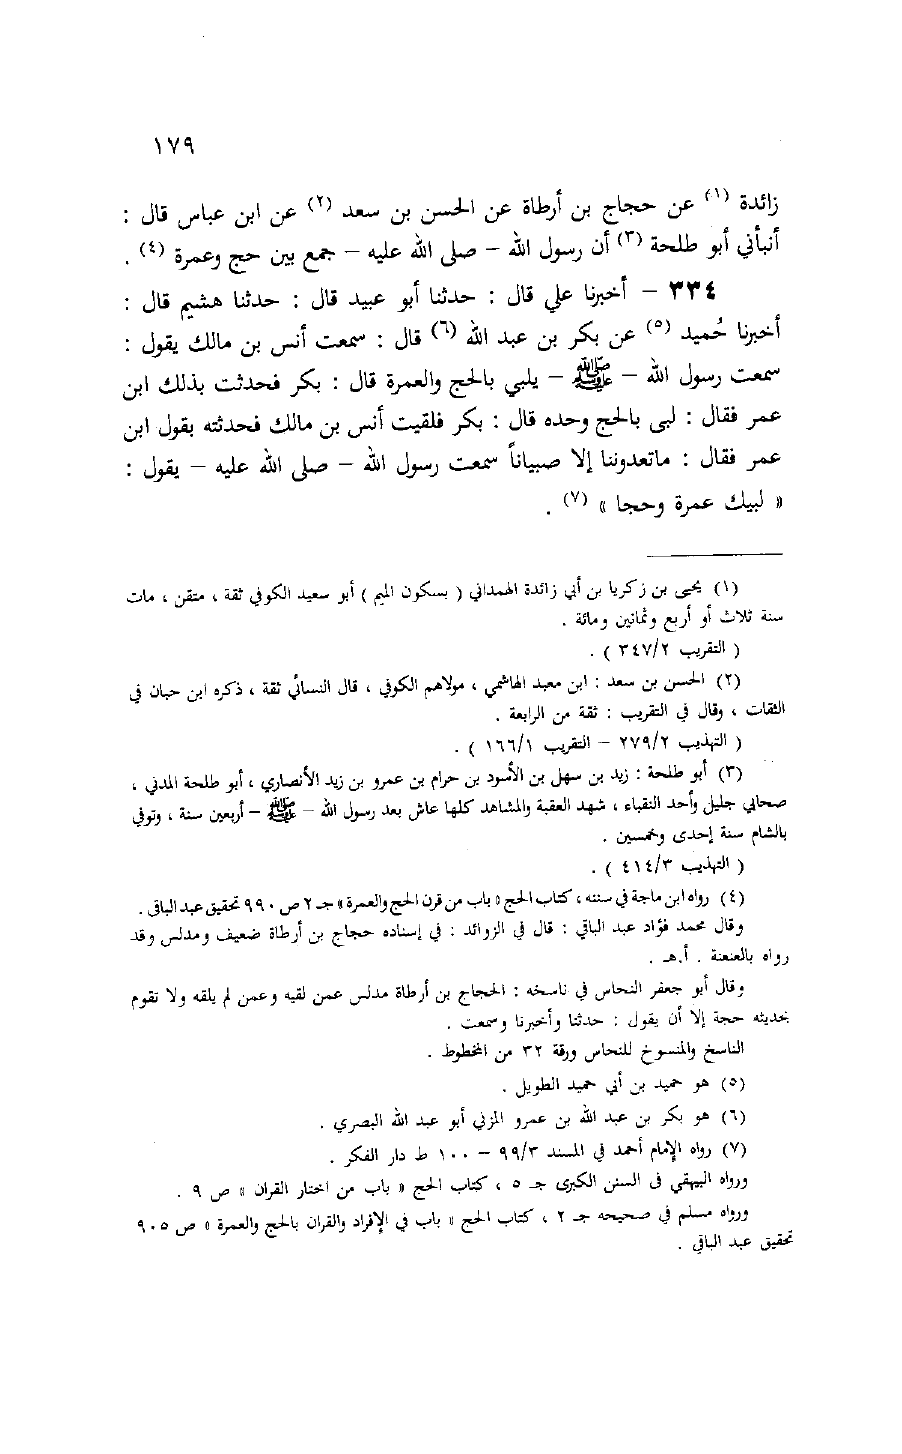 ١٧٩
زائدة (١) عن حجاج بن أرطاة عن الحسن بن سعد (٢) عن ابن عباس قال :
أنبأني أبو طلحة (٣) أن رسول الله – صلى الله عليه – جمع بين حج وعمرة (٤) .
٣٣٤ – أخبرنا علي قال : حدثنا أبو عبيد قال : حدثنا هشيم قال :
أخبرنا حُميد (٥) عن بكر بن عبد الله (٦) قال : سمعت أنس بن مالك يقول :
سمعت رسول الله – ﷺ – يلبي بالحج والعمرة قال : بكر فحدثت بذلك ابن
عمر فقال : لبى بالحج وحده قال : بكر فلقيت أنس بن مالك فحدثته بقول ابن
عمر فقال : ماتعدوننا إلا صبياناً سمعت رسول الله – صلى الله عليه – يقول :
« لبيك عمرة وحجا » (٧) .
(١) يحيى بن زكريا بن أبي زائدة الهمداني ( بسكون الميم ) أبو سعيد الكوفي ثقة ، متقن ، مات
سنة ثلاث أو أربع وثمانين ومائة .
( التقريب ٣٤٧/٢ ) .
(٢) الحسن بن سعد : ابن معبد الهاشمي ، مولاهم الكوفي ، قال النسائي ثقة ، ذكره ابن حبان في
الثقات ، وقال في التقريب : ثقة من الرابعة .
( التهذيب ٢٧٩/٢ – التقريب ١٦٦/١ ) .
(٣) أبو طلحة : زيد بن سهل بن الأسود بن حرام بن عمرو بن زيد الأنصاري ، أبو طلحة المدني ،
صحابي جليل وأحد النقباء ، شهد العقبة والمشاهد كلها عاش بعد رسول الله – ﷺ – أربعين سنة ، وتوفي
بالشام سنة إحدى وخمسين .
( التهذيب ٤١٤/٣ ) .
(٤) رواه ابن ماجة في سننه ، كتاب الحج « باب من قرن الحج والعمرة » جـ ٢ ص ٩٩٠ تحقيق عبد الباقي .
وقال محمد فؤاد عبد الباقي : قال في الزوائد : في إسناده حجاج بن أرطاة ضعيف ومدلس وقد
رواه بالعنعنة . أ.هـ .
وقال أبو جعفر النحاس في ناسخه : الحجاج بن أرطاة مدلس عمن لقيه وعمن لم يلقه ولا تقوم
بحديثه حجة إلا أن يقول : حدثنا وأخبرنا وسمعت .
الناسخ والمنسوخ للنحاس ورقة ٣٢ من المخطوط .
(٥) هو حميد بن أبي حميد الطويل .
(٦) هو بكر بن عبد الله بن عمرو المزني أبو عبد الله البصري .
(٧) رواه الإمام أحمد في المسند ٩٩/٣ – ١٠٠ ط دار الفكر .
ورواه البيهقي فى السنن الكبرى جـ ٥ ، كتاب الحج « باب من اختار القران » ص ٩ .
ورواه مسلم في صحيحه جـ ٢ ، كتاب الحج « باب في الإفراد والقران بالحج والعمرة » ص ٩٠٥
تحقيق عبد الباقي .